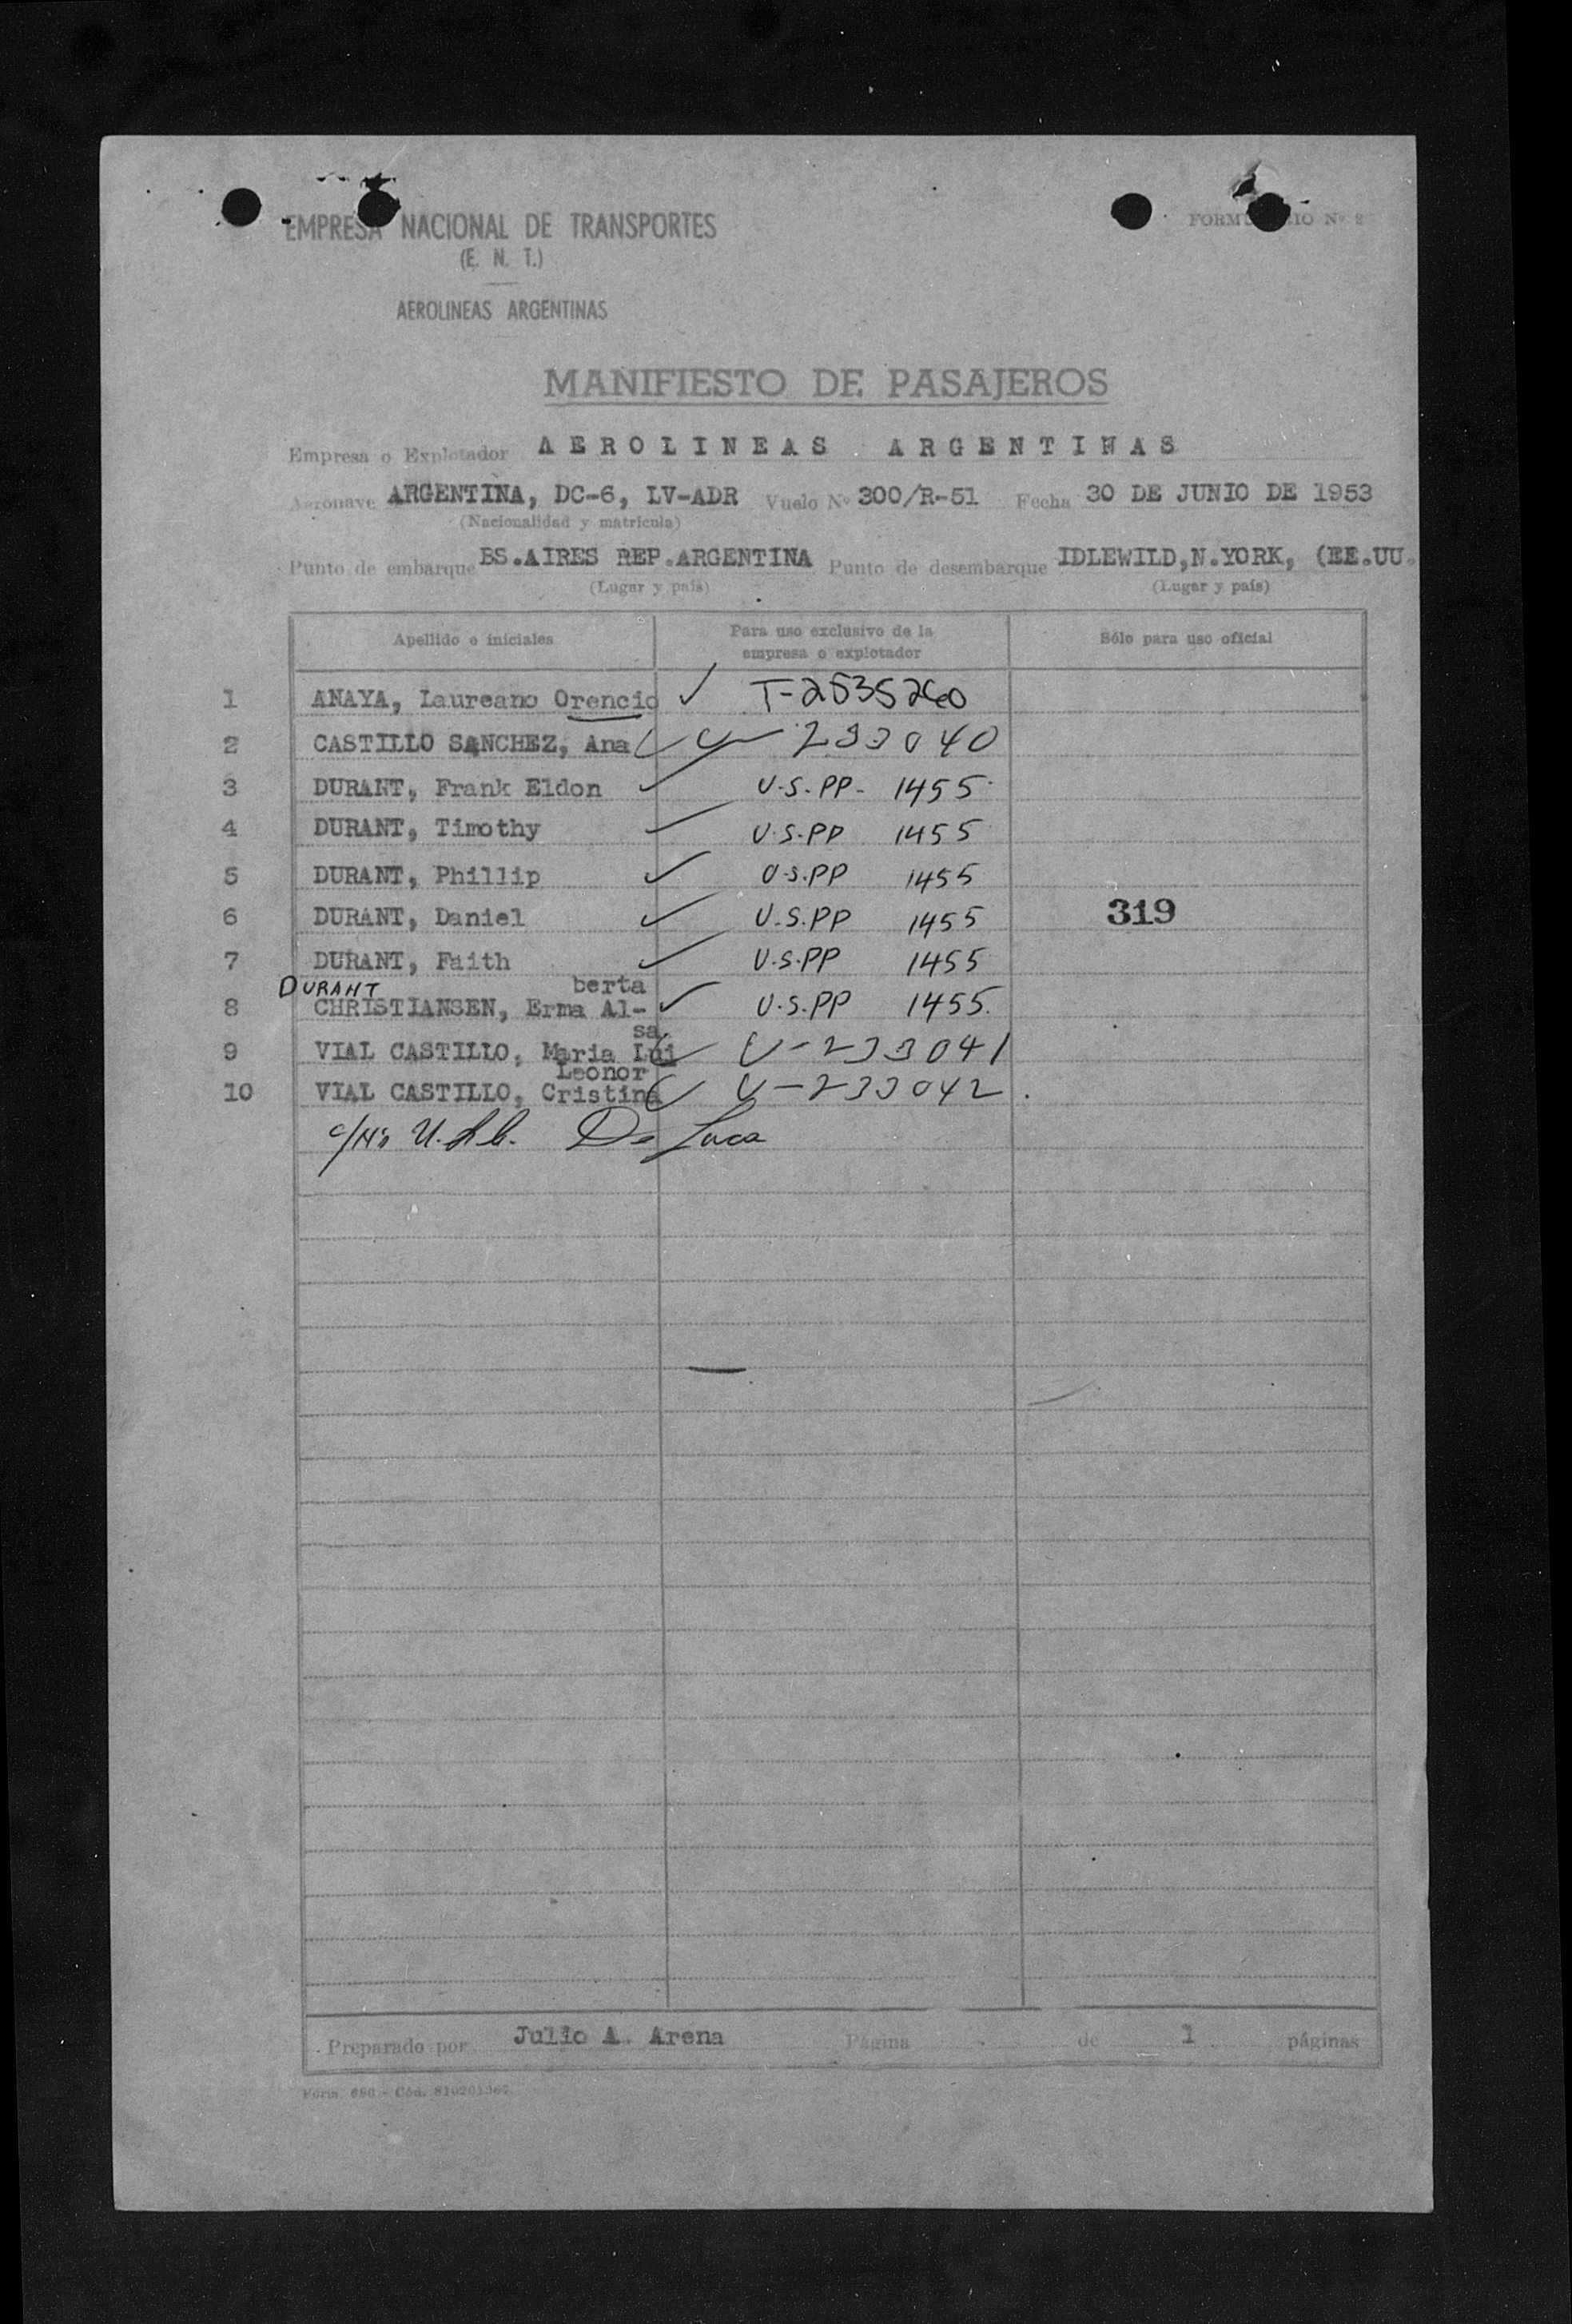 EMPRESA NACIONAL DE TRANSPORTES
(E. N. T.)
AEROLINEAS ARGENTINAS
FORMULARIO Nº 2
MANIFIESTO DE PASAJEROS
Empresa o Explotador AEROLINEAS ARGENTINAS
Aeronave ARGENTINA, DC-6, LV-ADR Vuelo Nº 300/R-51 Fecha 30 DE JUNIO DE 1953
(Nacionalidad y matrícula)
Punto de embarque BS.AIRES REP.ARGENTINA Punto de desembarque IDLEWILD,N.YORK, (EE.UU.
(Lugar y país) (Lugar y país)
Apellido e iniciales Para uso exclusivo de la empresa o explotador Sólo para uso oficial
1 ANAYA, Laureano Orencio ✓ T-2535260
2 CASTILLO SANCHEZ, Ana ✓ V-233040
3 DURANT, Frank Eldon ✓ U.S.PP- 1455
4 DURANT, Timothy ✓ U.S.PP 1455
5 DURANT, Phillip ✓ U.S.PP 1455
6 DURANT, Daniel ✓ U.S.PP 1455 319
7 DURANT, Faith ✓ U.S.PP 1455
DURANT berta
8 CHRISTIANSEN, Erma Al- ✓ U.S.PP 1455.
sa
9 VIAL CASTILLO, Maria Lui ✓ V-233041
Leonor
10 VIAL CASTILLO, Cristina ✓ V-233042.
De Luca
Preparado por Julio A. Arena Página de 1 páginas